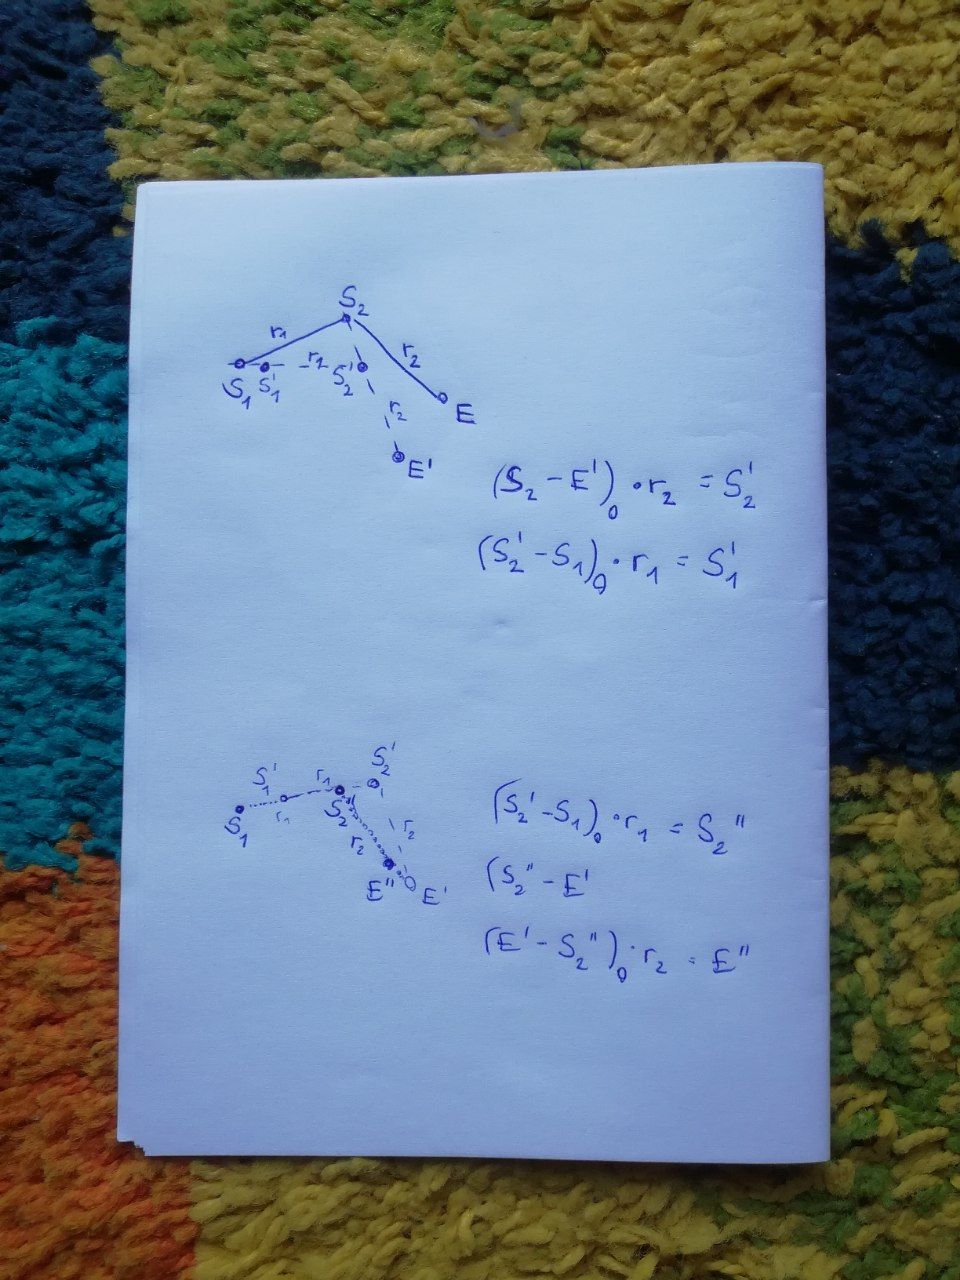 S₂
r₁
r₂
S₁ S₁' r₁ S₂'
r₂
E
E'
(S₂ - E')₀ · r₂ = S₂'
(S₂' - S₁)₀ · r₁ = S₁'
S₂'
S₁' r₁
S₁ r₁ S₂
r₂ r₂
E'' E'
(S₂' - S₁)₀ · r₁ = S₂''
(S₂'' - E'
(E' - S₂'')₀ · r₂ = E''